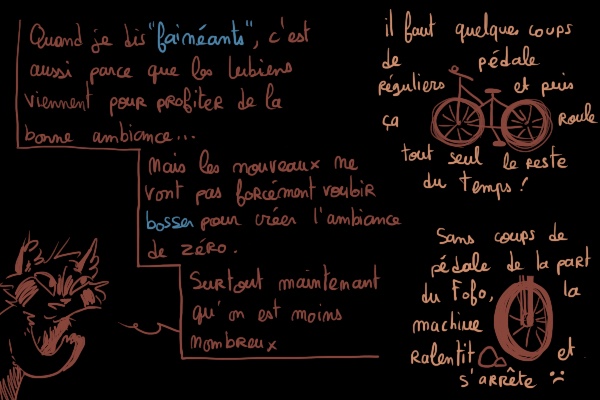 Quand je dis "fainéants", c'est
aussi parce que les lurkers
viennent pour profiter de la
bonne ambiance...
mais les nouveaux ne
vont pas forcément vouloir
bosser pour créer l'ambiance
de zéro.
Surtout maintenant
qu'on est moins
nombreux
il faut quelques coups
de pédale
réguliers et puis
ça roule
tout seul le reste
du temps !
Sans coups de
pédale de la part
du Fofo, la
machine
ralentit et
s'arrête :(